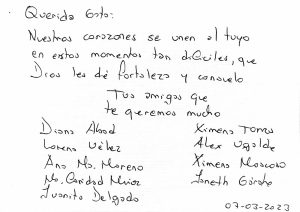 Querida Esta:
Nuestros corazones se unen al tuyo
en estos momentos tan difíciles, que
Dios les dé fortaleza y consuelo
Tus amigos que
te queremos mucho
Diana Abad
Ximena Torres
Lorena Vélez
Alex Ugalde
Ana Ma. Moreno
Ximena Moscoso
Ma. Caridad Muñoz
Janeth
Juanita Delgado
07-03-2023